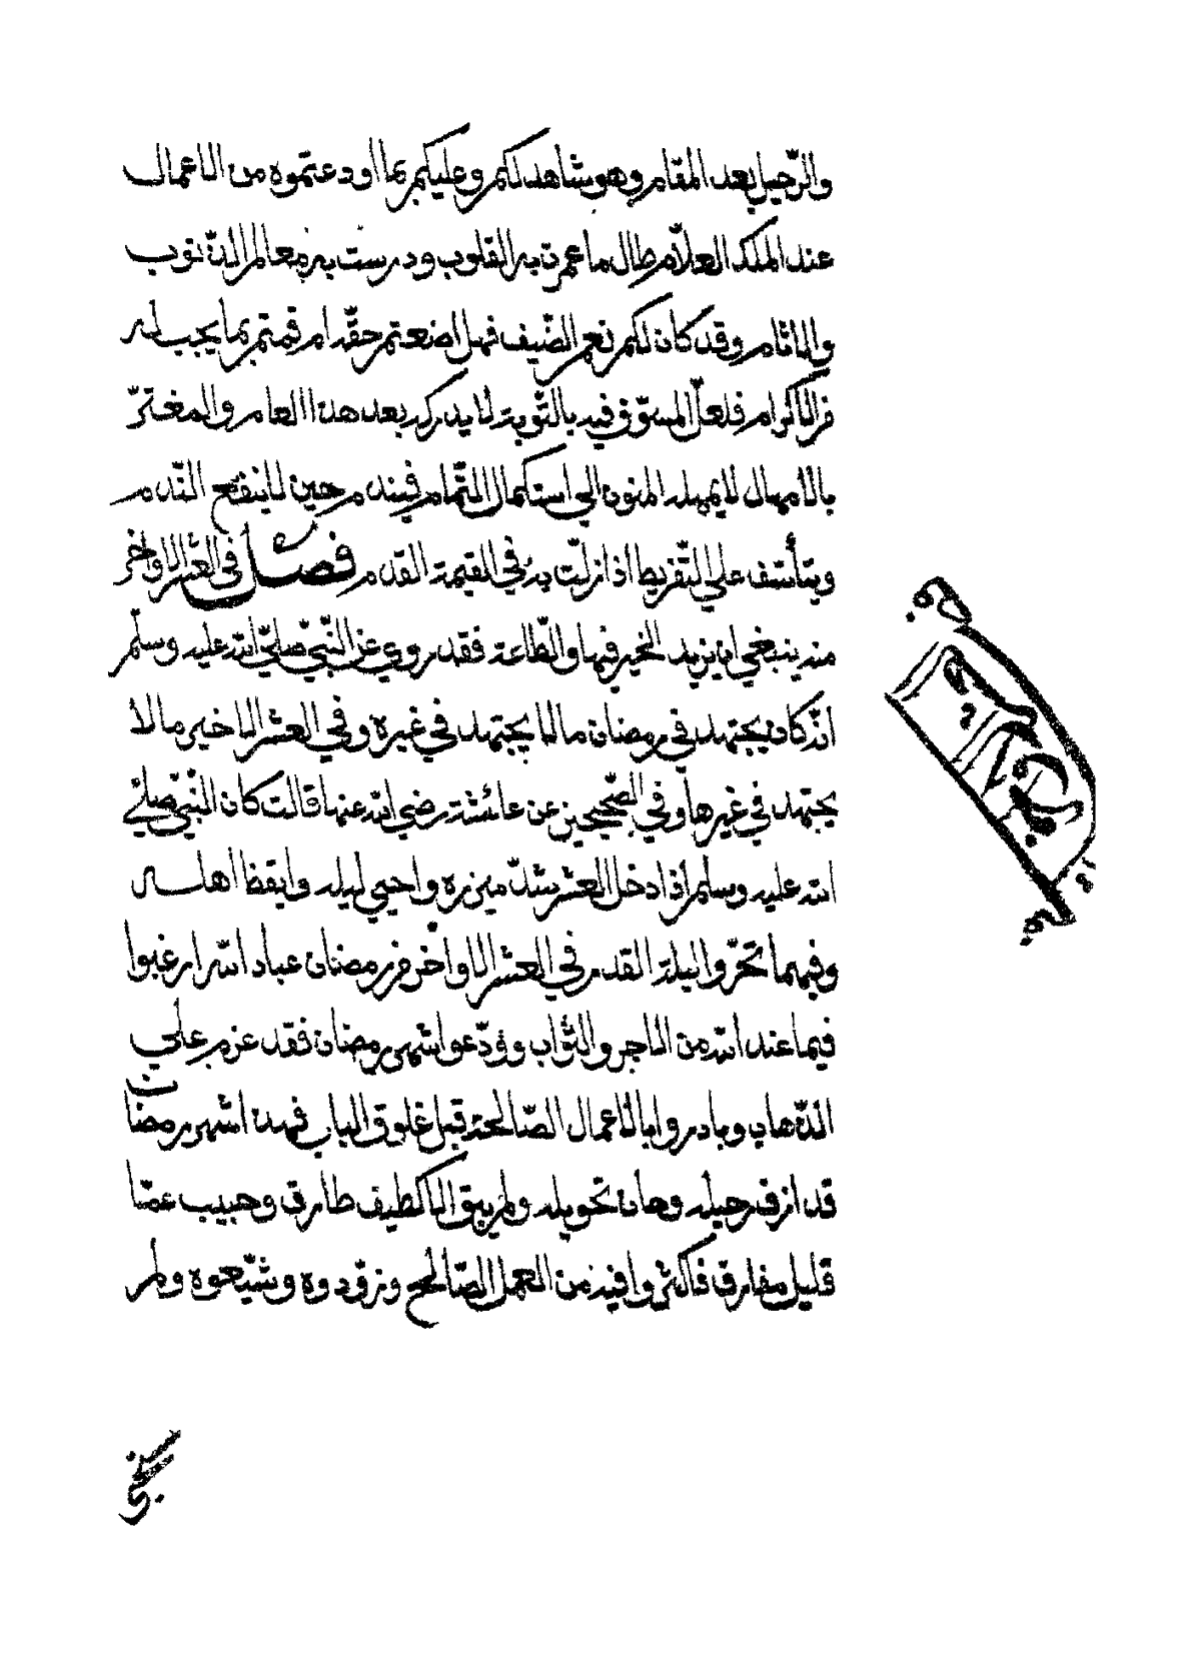 والرّحيل بعد المقام وهو شاهد لكم وعليكم بما اودعتموه من الاعمال
عند الملك العلاّم طال ما عمرت به القلوب ودرست به معالم الذّنوب
والاثام وقد كان لكم نعم الضّيف فهل اضعتم حقّه ام قمتم بما يجب له
من الاكرام فلعلّ المسوّف فيه بالتّوبة لا يدركه بعد هذا العام والمغترّ
بالامهال لا يمهله المنون الي استكمال التّمام فيندم حين لا ينفع النّدم
ويتأسّف علي التّفريط اذا زلّت به في القيمة القدم فصل في العشر الاواخر
منه ينبغي ان يزيد الخير فيها والطّاعة فقد روي عن النّبيّ صلّي الله عليه وسلّم
انّه كان يجتهد في رمضان ما لا يجتهد في غيره وفي العشر الاخير ما لا
يجتهد في غيرها وفي الصّحيحين عن عائشة رضي الله عنها قالت كان النّبيّ صلّي
الله عليه وسلّم اذا دخل العشر شدّ ميزره واحيي ليله وايقظ اهله
وفيهما تحرّوا ليلة القدر في العشر الاواخر من رمضان عباد الله ارغبوا
فيما عند الله من الاجر والثّواب وودّعوا شهر رمضان فقد عزم علي
الذّهاب وبادروا بالاعمال الصّالحة قبل غلوق الباب فهذا شهر رمضان
قد ازف رحيله وحان تحويله ولم يبق الا كطيف طارق وحبيب عمّا
قليل مفارق فاكثروا فيه من العمل الصّالح وزوّدوه وشيّعوه ولم